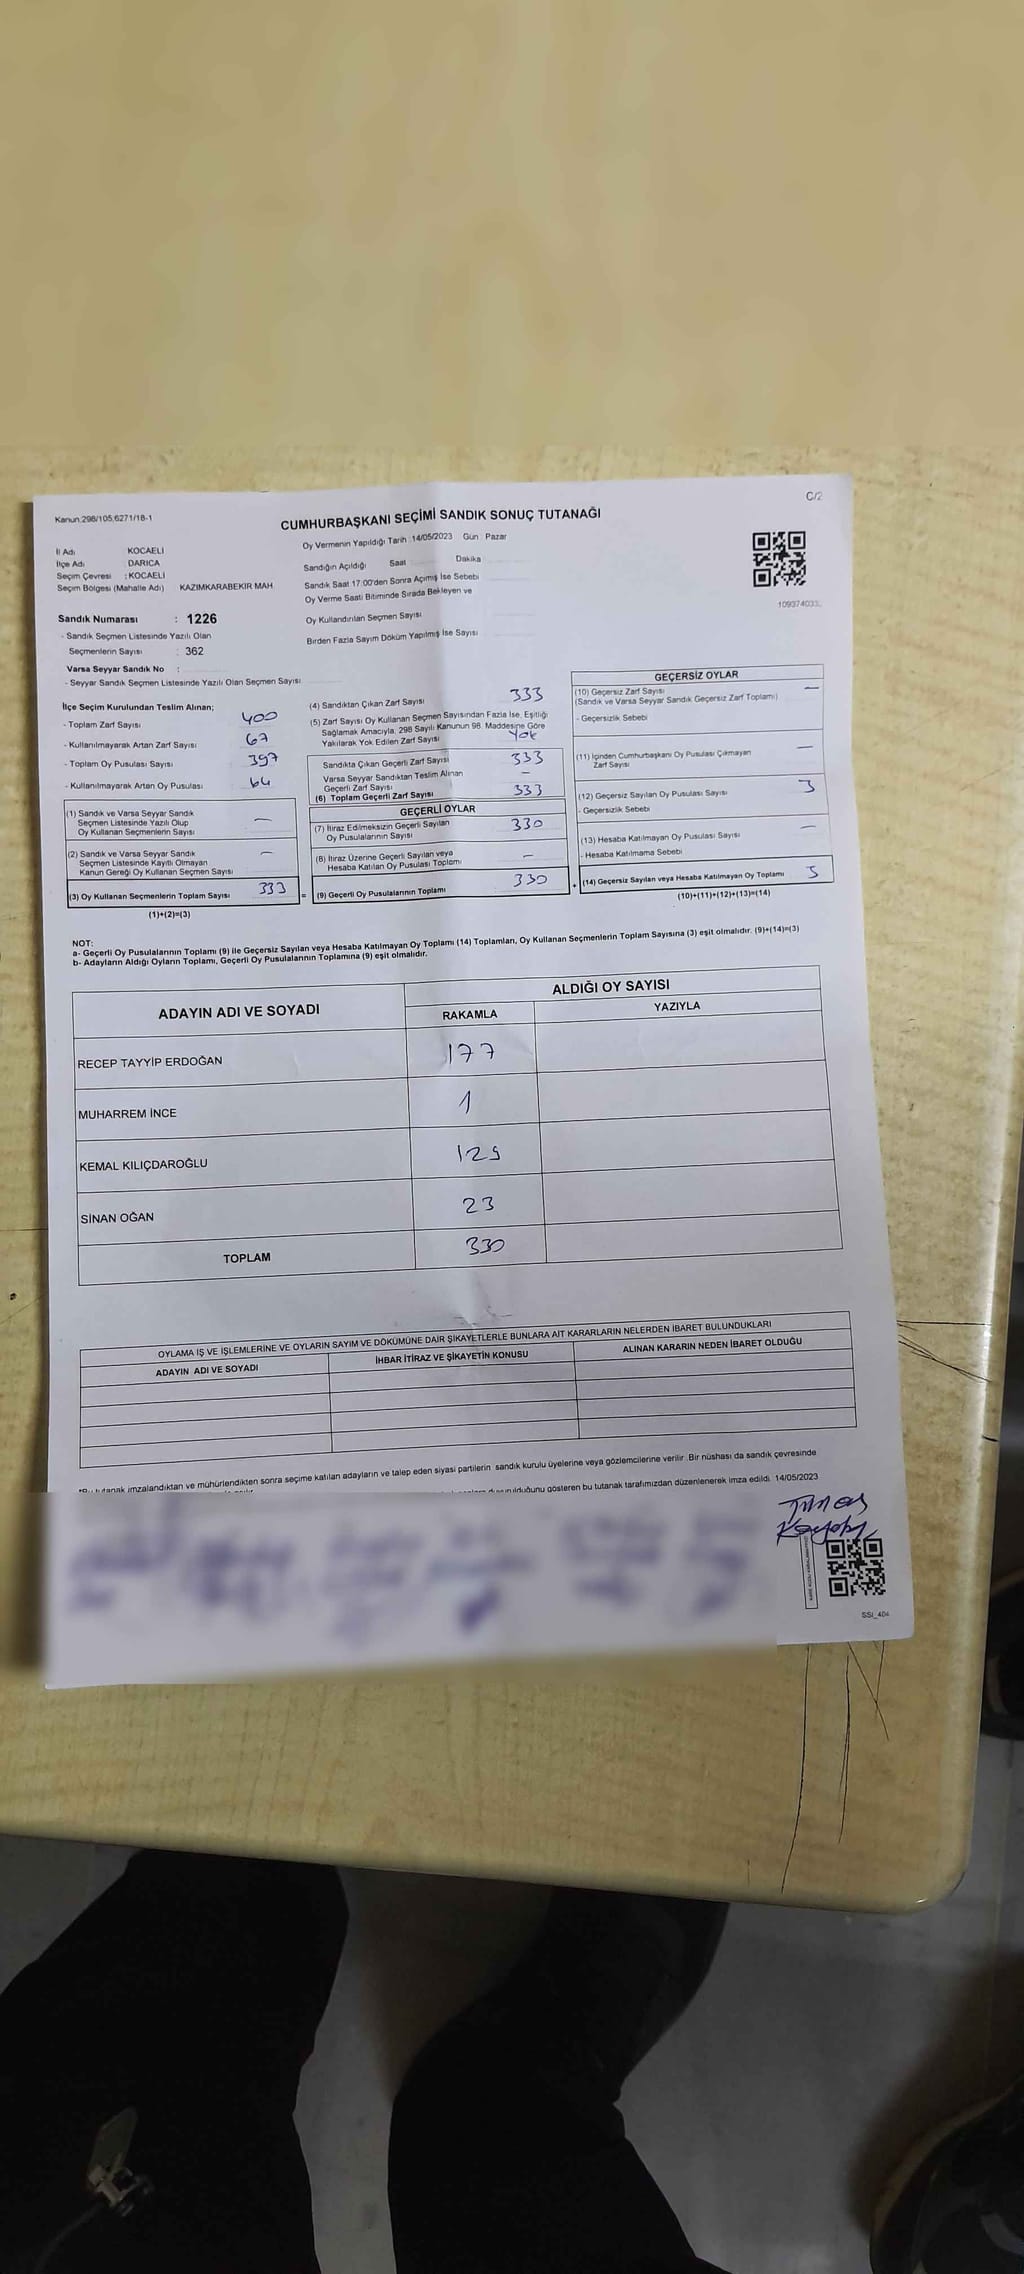 C/2
Kanun:298/105;6271/18-1
CUMHURBAŞKANI SEÇİMİ SANDIK SONUÇ TUTANAĞI
İl Adı KOCAELİ
İlçe Adı DARICA
Seçim Çevresi : KOCAELİ
Seçim Bölgesi (Mahalle Adı) KAZIMKARABEKİR MAH
Sandık Numarası : 1226
- Sandık Seçmen Listesinde Yazılı Olan
Seçmenlerin Sayısı : 362
Varsa Seyyar Sandık No :
- Seyyar Sandık Seçmen Listesinde Yazılı Olan Seçmen Sayısı
Oy Vermenin Yapıldığı Tarih :14/05/2023 Gün Pazar
Sandığın Açıldığı Saat Dakika
Sandık Saat 17:00'den Sonra Açımış İse Sebebi
Oy Verme Saati Bitiminde Sırada Bekleyen ve
Oy Kullandırılan Seçmen Sayısı
Birden Fazla Sayım Döküm Yapılmış İse Sayısı
109374033
İlçe Seçim Kurulundan Teslim Alınan;
- Toplam Zarf Sayısı 400
- Kullanılmayarak Artan Zarf Sayısı 67
- Toplam Oy Pusulası Sayısı 397
- Kullanılmayarak Artan Oy Pusulası 64
(1) Sandık ve Varsa Seyyar Sandık
Seçmen Listesinde Yazılı Olup
Oy Kullanan Seçmenlerin Sayısı —
(2) Sandık ve Varsa Seyyar Sandık
Seçmen Listesinde Kayıtlı Olmayan
Kanun Gereği Oy Kullanan Seçmen Sayısı —
(3) Oy Kullanan Seçmenlerin Toplam Sayısı 333
(1)+(2)=(3)
(4) Sandıktan Çıkan Zarf Sayısı 333
(5) Zarf Sayısı Oy Kullanan Seçmen Sayısından Fazla İse, Eşitliği
Sağlamak Amacıyla, 298 Sayılı Kanunun 98. Maddesine Göre
Yakılarak Yok Edilen Zarf Sayısı Yok
Sandıkta Çıkan Geçerli Zarf Sayısı 333
Varsa Seyyar Sandıktan Teslim Alınan
Geçerli Zarf Sayısı —
(6) Toplam Geçerli Zarf Sayısı 333
GEÇERLİ OYLAR
(7) İtiraz Edilmeksizin Geçerli Sayılan
Oy Pusulalarının Sayısı 330
(8) İtiraz Üzerine Geçerli Sayılan veya
Hesaba Katılan Oy Pusulası Toplamı —
= (9) Geçerli Oy Pusulalarının Toplamı 330
GEÇERSİZ OYLAR
(10) Geçersiz Zarf Sayısı —
(Sandık ve Varsa Seyyar Sandık Geçersiz Zarf Toplamı)
- Geçersizlik Sebebi
(11) İçinden Cumhurbaşkanı Oy Pusulası Çıkmayan —
Zarf Sayısı
(12) Geçersiz Sayılan Oy Pusulası Sayısı 3
- Geçersizlik Sebebi
(13) Hesaba Katılmayan Oy Pusulası Sayısı —
- Hesaba Katılmama Sebebi
+ (14) Geçersiz Sayılan veya Hesaba Katılmayan Oy Toplamı 3
(10)+(11)+(12)+(13)=(14)
NOT:
a- Geçerli Oy Pusulalarının Toplamı (9) ile Geçersiz Sayılan veya Hesaba Katılmayan Oy Toplamı (14) Toplamları, Oy Kullanan Seçmenlerin Toplam Sayısına (3) eşit olmalıdır. (9)+(14)=(3)
b- Adayların Aldığı Oyların Toplamı, Geçerli Oy Pusulalarının Toplamına (9) eşit olmalıdır.
ADAYIN ADI VE SOYADI ALDIĞI OY SAYISI
RAKAMLA YAZIYLA
RECEP TAYYİP ERDOĞAN 177
MUHARREM İNCE 1
KEMAL KILIÇDAROĞLU 129
SİNAN OĞAN 23
TOPLAM 330
OYLAMA İŞ VE İŞLEMLERİNE VE OYLARIN SAYIM VE DÖKÜMÜNE DAİR ŞİKAYETLERLE BUNLARA AİT KARARLARIN NELERDEN İBARET BULUNDUKLARI
ADAYIN ADI VE SOYADI İHBAR İTİRAZ VE ŞİKAYETİN KONUSU ALINAN KARARIN NEDEN İBARET OLDUĞU
*Bu tutanak imzalandıktan ve mühürlendikten sonra seçime katılan adayların ve talep eden siyasi partilerin sandık kurulu üyelerine veya gözlemcilerine verilir. Bir nüshası da sandık çevresinde
duyurulduğunu gösteren bu tutanak tarafımızdan düzenlenerek imza edildi. 14/05/2023